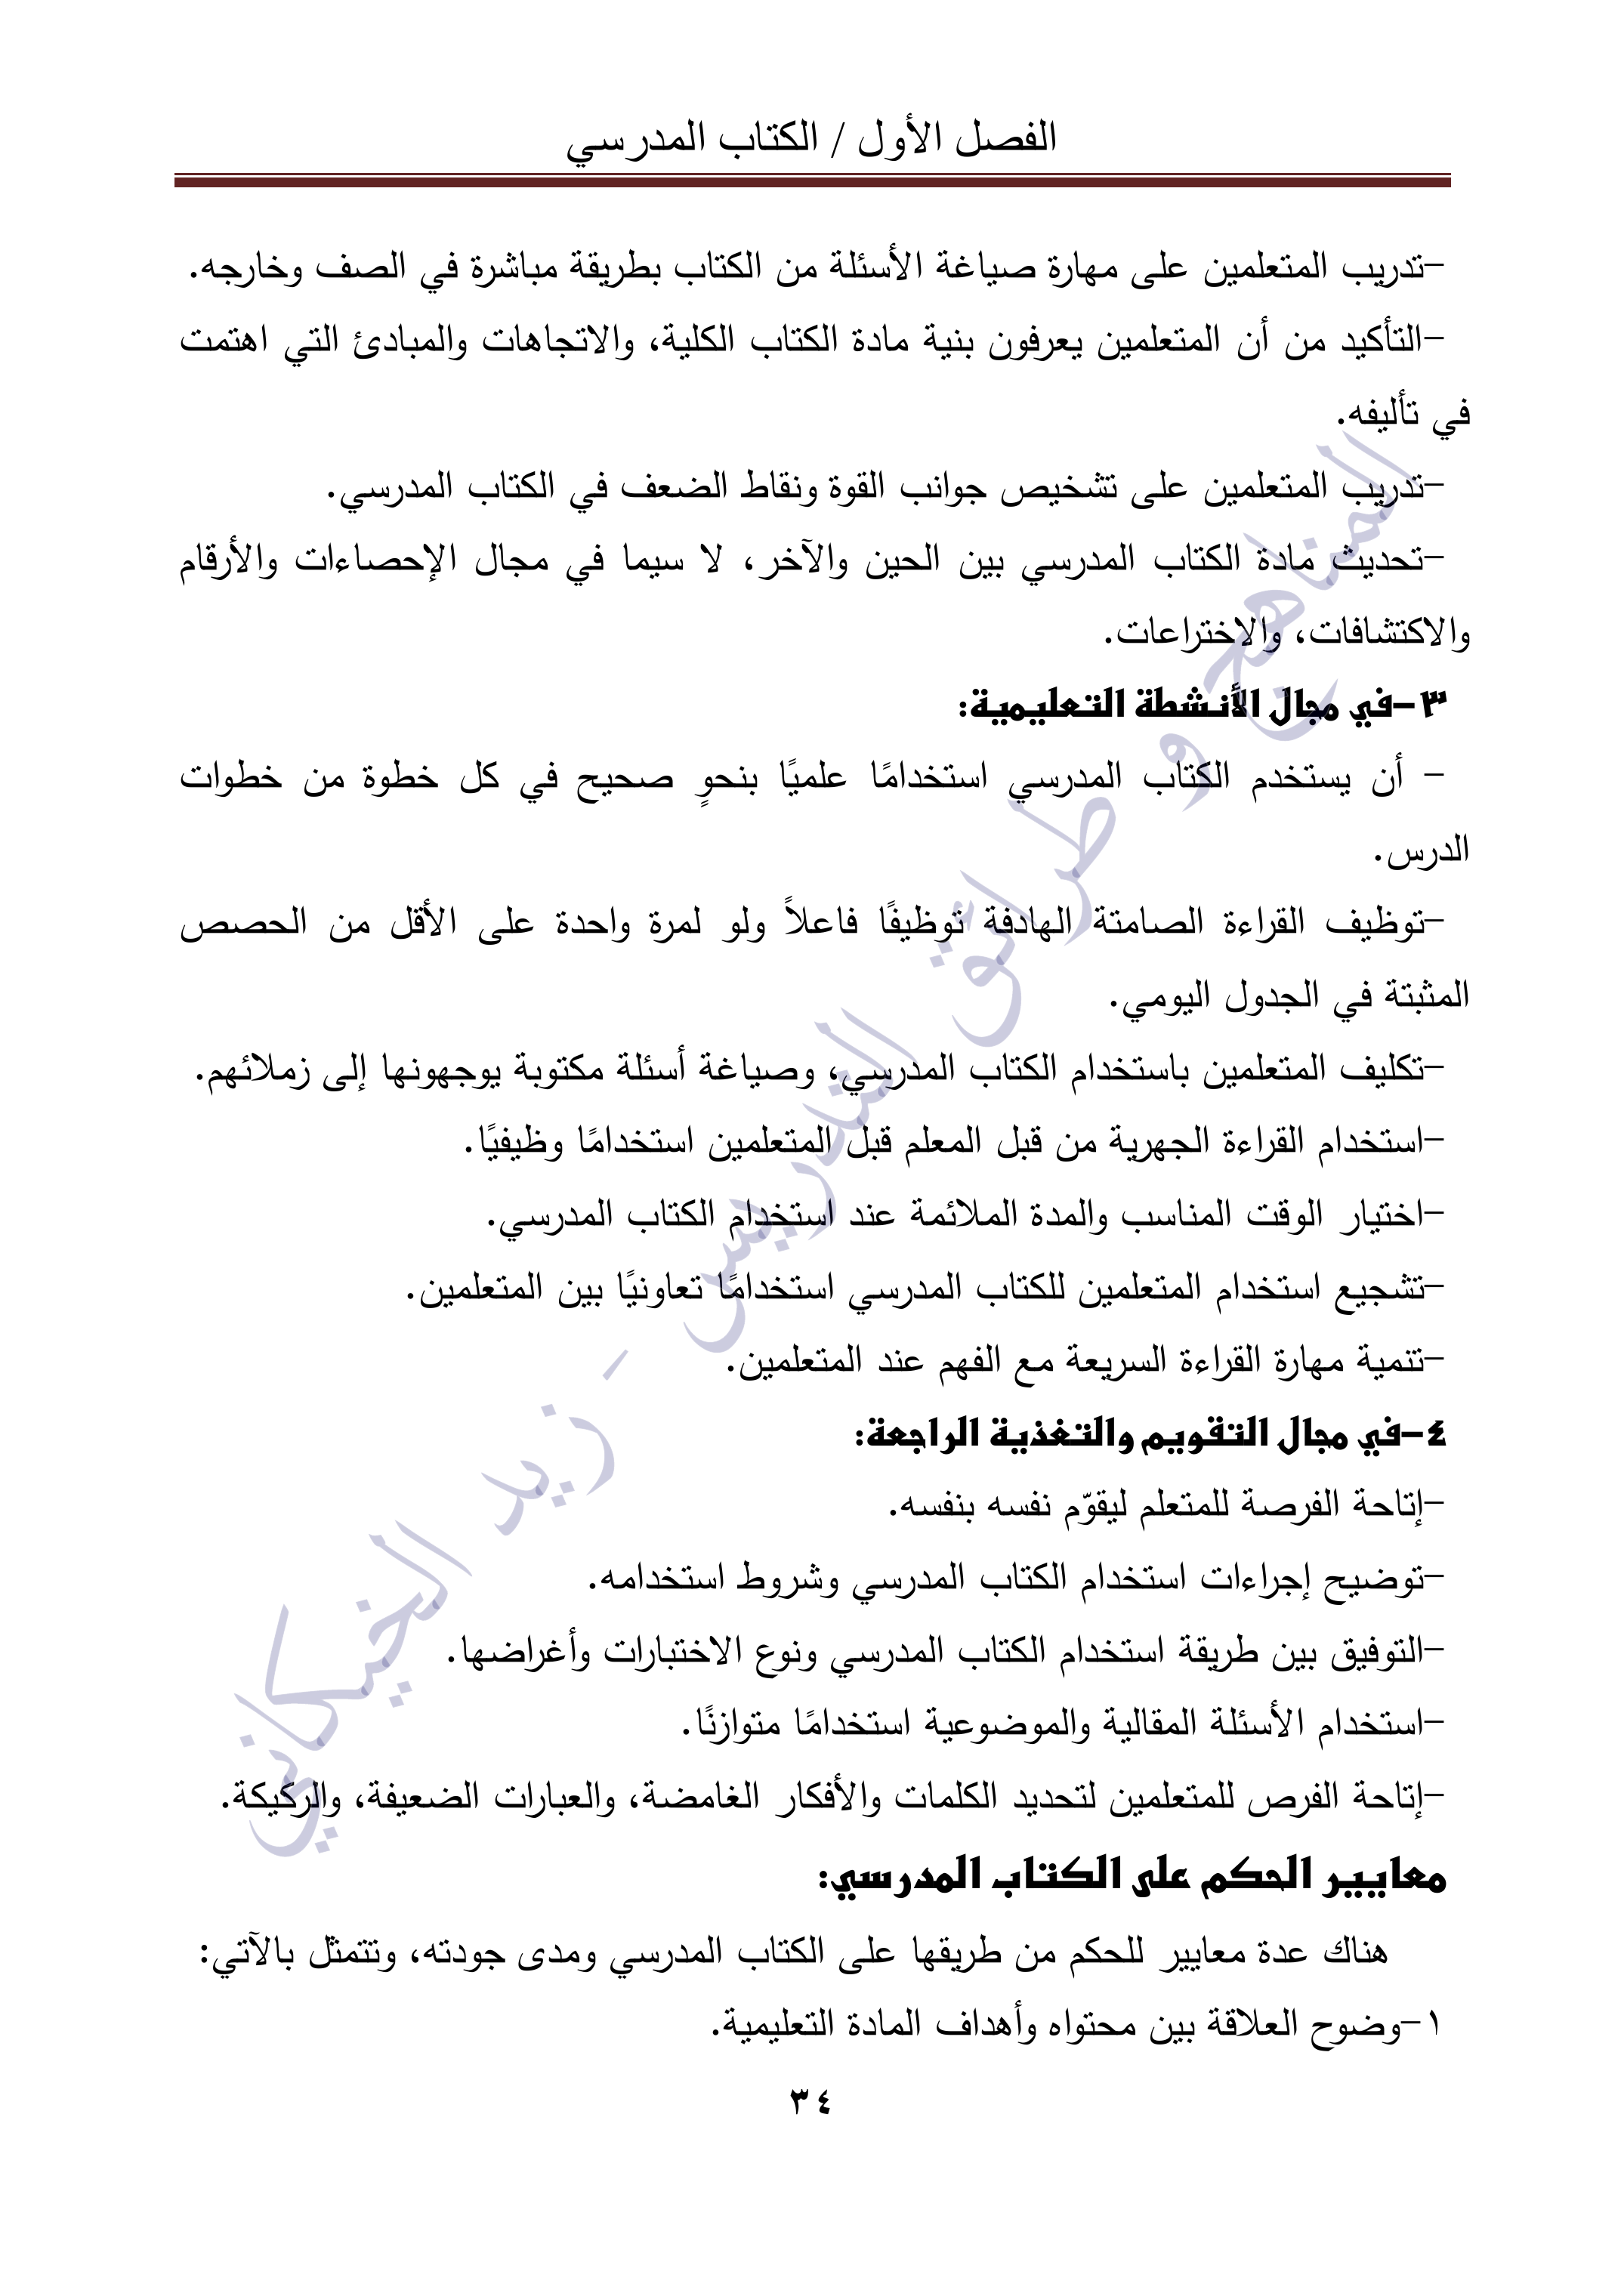 الفصل الأول / الكتاب المدرسي
-تدريب المتعلمين على مهارة صياغة الأسئلة من الكتاب بطريقة مباشرة في الصف وخارجه.
-التأكيد من أن المتعلمين يعرفون بنية مادة الكتاب الكلية، والاتجاهات والمبادئ التي اهتمت
في تأليفه.
-تدريب المتعلمين على تشخيص جوانب القوة ونقاط الضعف في الكتاب المدرسي.
-تحديث مادة الكتاب المدرسي بين الحين والآخر، لا سيما في مجال الإحصاءات والأرقام
والاكتشافات، والاختراعات.
٣-في مجال الأنشطة التعليمية:
- أن يستخدم الكتاب المدرسي استخدامًا علميًا بنحوٍ صحيح في كل خطوة من خطوات
الدرس.
-توظيف القراءة الصامتة الهادفة توظيفًا فاعلاً ولو لمرة واحدة على الأقل من الحصص
المثبتة في الجدول اليومي.
-تكليف المتعلمين باستخدام الكتاب المدرسي، وصياغة أسئلة مكتوبة يوجهونها إلى زملائهم.
-استخدام القراءة الجهرية من قبل المعلم قبل المتعلمين استخدامًا وظيفيًا.
-اختيار الوقت المناسب والمدة الملائمة عند استخدام الكتاب المدرسي.
-تشجيع استخدام المتعلمين للكتاب المدرسي استخدامًا تعاونيًا بين المتعلمين.
-تنمية مهارة القراءة السريعة مع الفهم عند المتعلمين.
٤-في مجال التقويم والتغذية الراجعة:
-إتاحة الفرصة للمتعلم ليقوّم نفسه بنفسه.
-توضيح إجراءات استخدام الكتاب المدرسي وشروط استخدامه.
-التوفيق بين طريقة استخدام الكتاب المدرسي ونوع الاختبارات وأغراضها.
-استخدام الأسئلة المقالية والموضوعية استخدامًا متوازنًا.
-إتاحة الفرص للمتعلمين لتحديد الكلمات والأفكار الغامضة، والعبارات الضعيفة، والركيكة.
معايير الحكم على الكتاب المدرسي:
هناك عدة معايير للحكم من طريقها على الكتاب المدرسي ومدى جودته، وتتمثل بالآتي:
١-وضوح العلاقة بين محتواه وأهداف المادة التعليمية.
٣٤
المناهج و طرائق التدريس - زيد الخيكاني